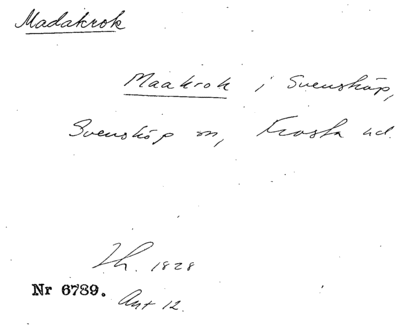 Madakrok
Maakrok i Svensköp,
Svensköp sn, Frosta hd.
Th. 1828
Nr 6789. Ant 12.